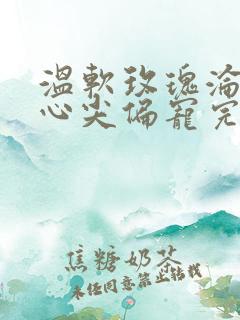 溫軟玫瑰淪
心尖偏寵完
焦糖奶茶
未经同意禁止转载